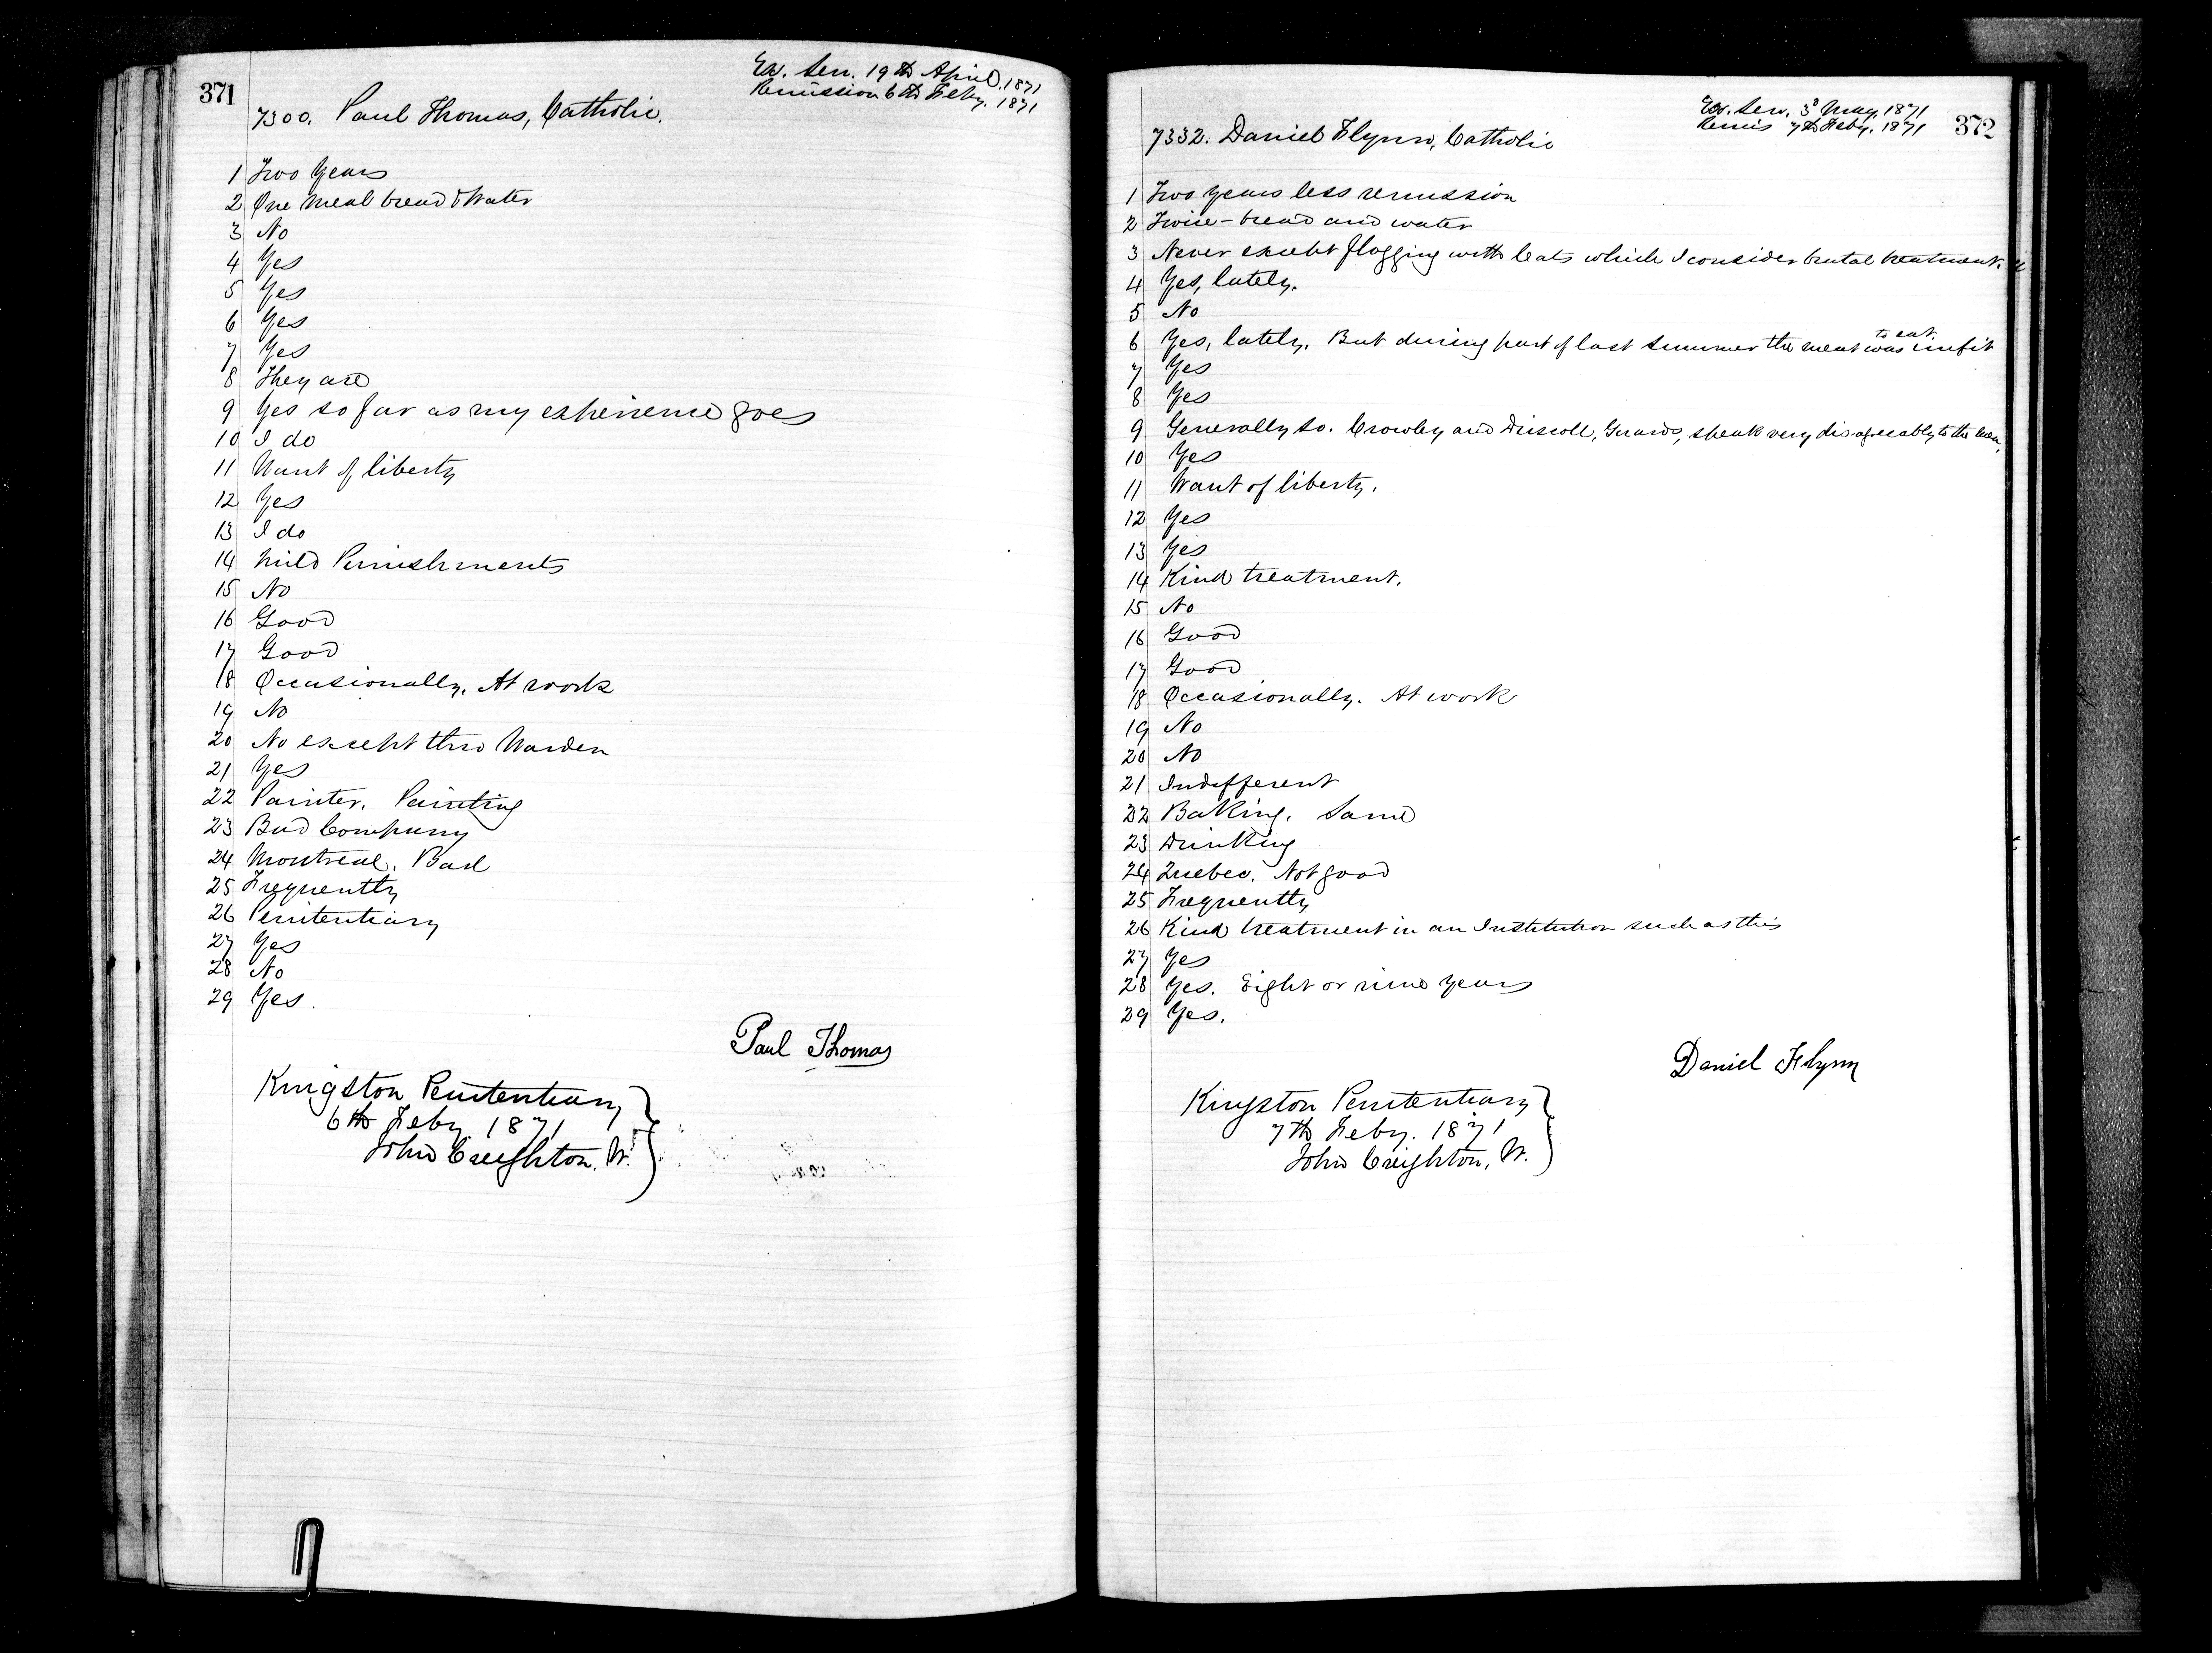 371
Ex. Sen. 19th April 1871
Remission 6th Feby. 1871
7300. Paul Thomas, Catholic.
1 Two Years
2 One meal bread & Water
3 No
4 Yes
5 Yes
6 Yes
7 Yes
8 They are
9 Yes so far as my experience goes
10 I do
11 Want of liberty
12 Yes
13 I do
14 Mild Punishments
15 No
16 Good
17 Good
18 Occasionally. At work
19 No
20 No except thro Warden
21 Yes
22 Painter. Painting
23 Bad Company
24 Montreal. Bad
25 Frequently
26 Penitentiary
27 Yes
28 No
29 Yes.
Paul Thomas
Kingston Penitentiary
6th Feby 1871
John Creighton. W.
372
Ex. Sen. 3d May, 1871
Remis 7th Feby. 1871
7332. Daniel Flynn, Catholic
1 Two years less remission
2 Twice - bread and water
3 Never except flogging with Cats which I consider brutal treatment.
4 Yes, lately.
5 No
6 Yes, lately. But during part of last summer the meat was unfit to eat
7 Yes
8 Yes
9 Generally so. Crowley and Driscoll, Guards, speak very disagreeably to the men.
10 Yes
11 Want of liberty.
12 Yes
13 Yes
14 Kind treatment.
15 No
16 Good
17 Good
18 Occasionally. At work
19 No
20 No
21 Indifferent
22 Baking. Same
23 Drinking
24 Quebec. Not good
25 Frequently
26 Kind treatment in an Institution such as this
27 Yes
28 Yes. Eight or nine years
29 Yes.
Daniel Flynn
Kingston Penitentiary
7th Feby. 1871
John Creighton, W.